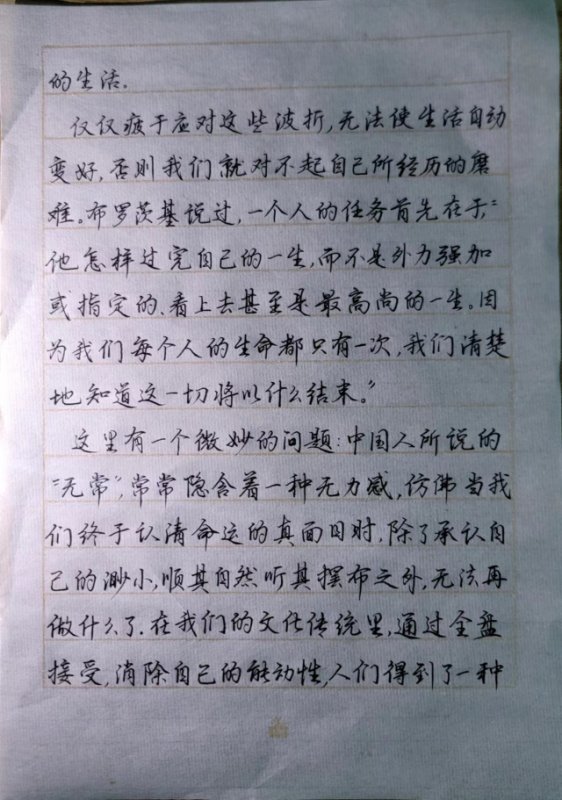 的生活.
仅仅疲于应对这些波折,无法使生活自动
变好,否则我们就对不起自己所经历的磨
难。布罗茨基说过,一个人的任务首先在于,“
他怎样过完自己的一生,而不是外力强加
或指定的、看上去甚至是最高尚的一生。因
为我们每个人的生命都只有一次,我们清楚
地知道这一切将以什么结束。”
这里有一个微妙的问题:中国人所说的
“无常”,常常隐含着一种无力感,仿佛当我
们终于认清命运的真面目时,除了承认自
己的渺小,顺其自然听其摆布之外,无法再
做什么了.在我们的文化传统里,通过全盘
接受,消除自己的能动性,人们得到了一种